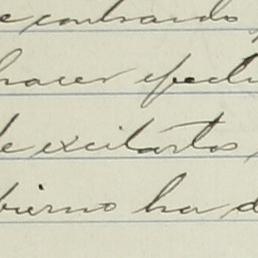 e contrario
hacer efecti
de excitarlos
bierno ha d